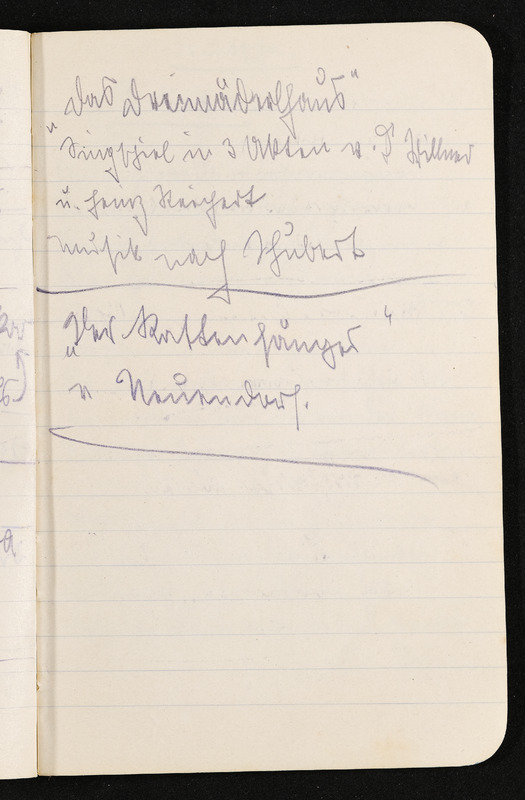 "Das Dreimäderlhaus"
Singspiel in 3 Akten v. Dr Willner
u. Heinz Reichert
Musik nach Schubert
"Der Rattenfänger"
v Neuendorf.